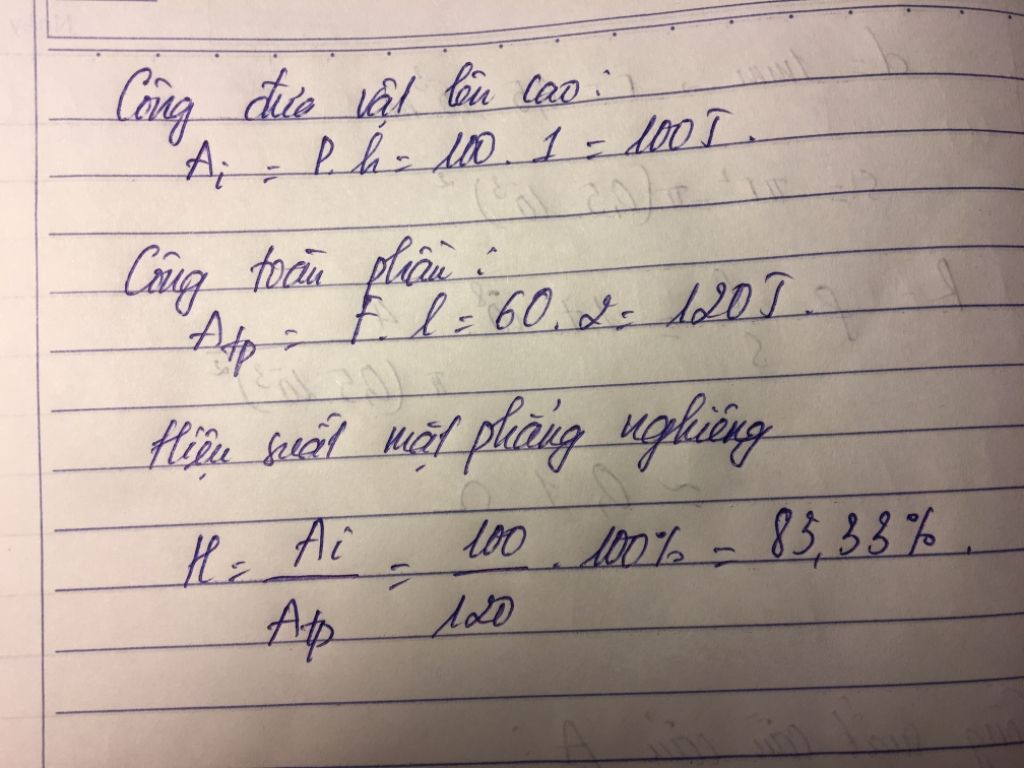 Công đưa vật lên cao:
Ai = P.h = 100.1 = 100J.
Công toàn phần:
Atp = F.l = 60.2 = 120J.
Hiệu suất mặt phẳng nghiêng
H = Ai/Atp = 100/120 . 100% = 83,33%.